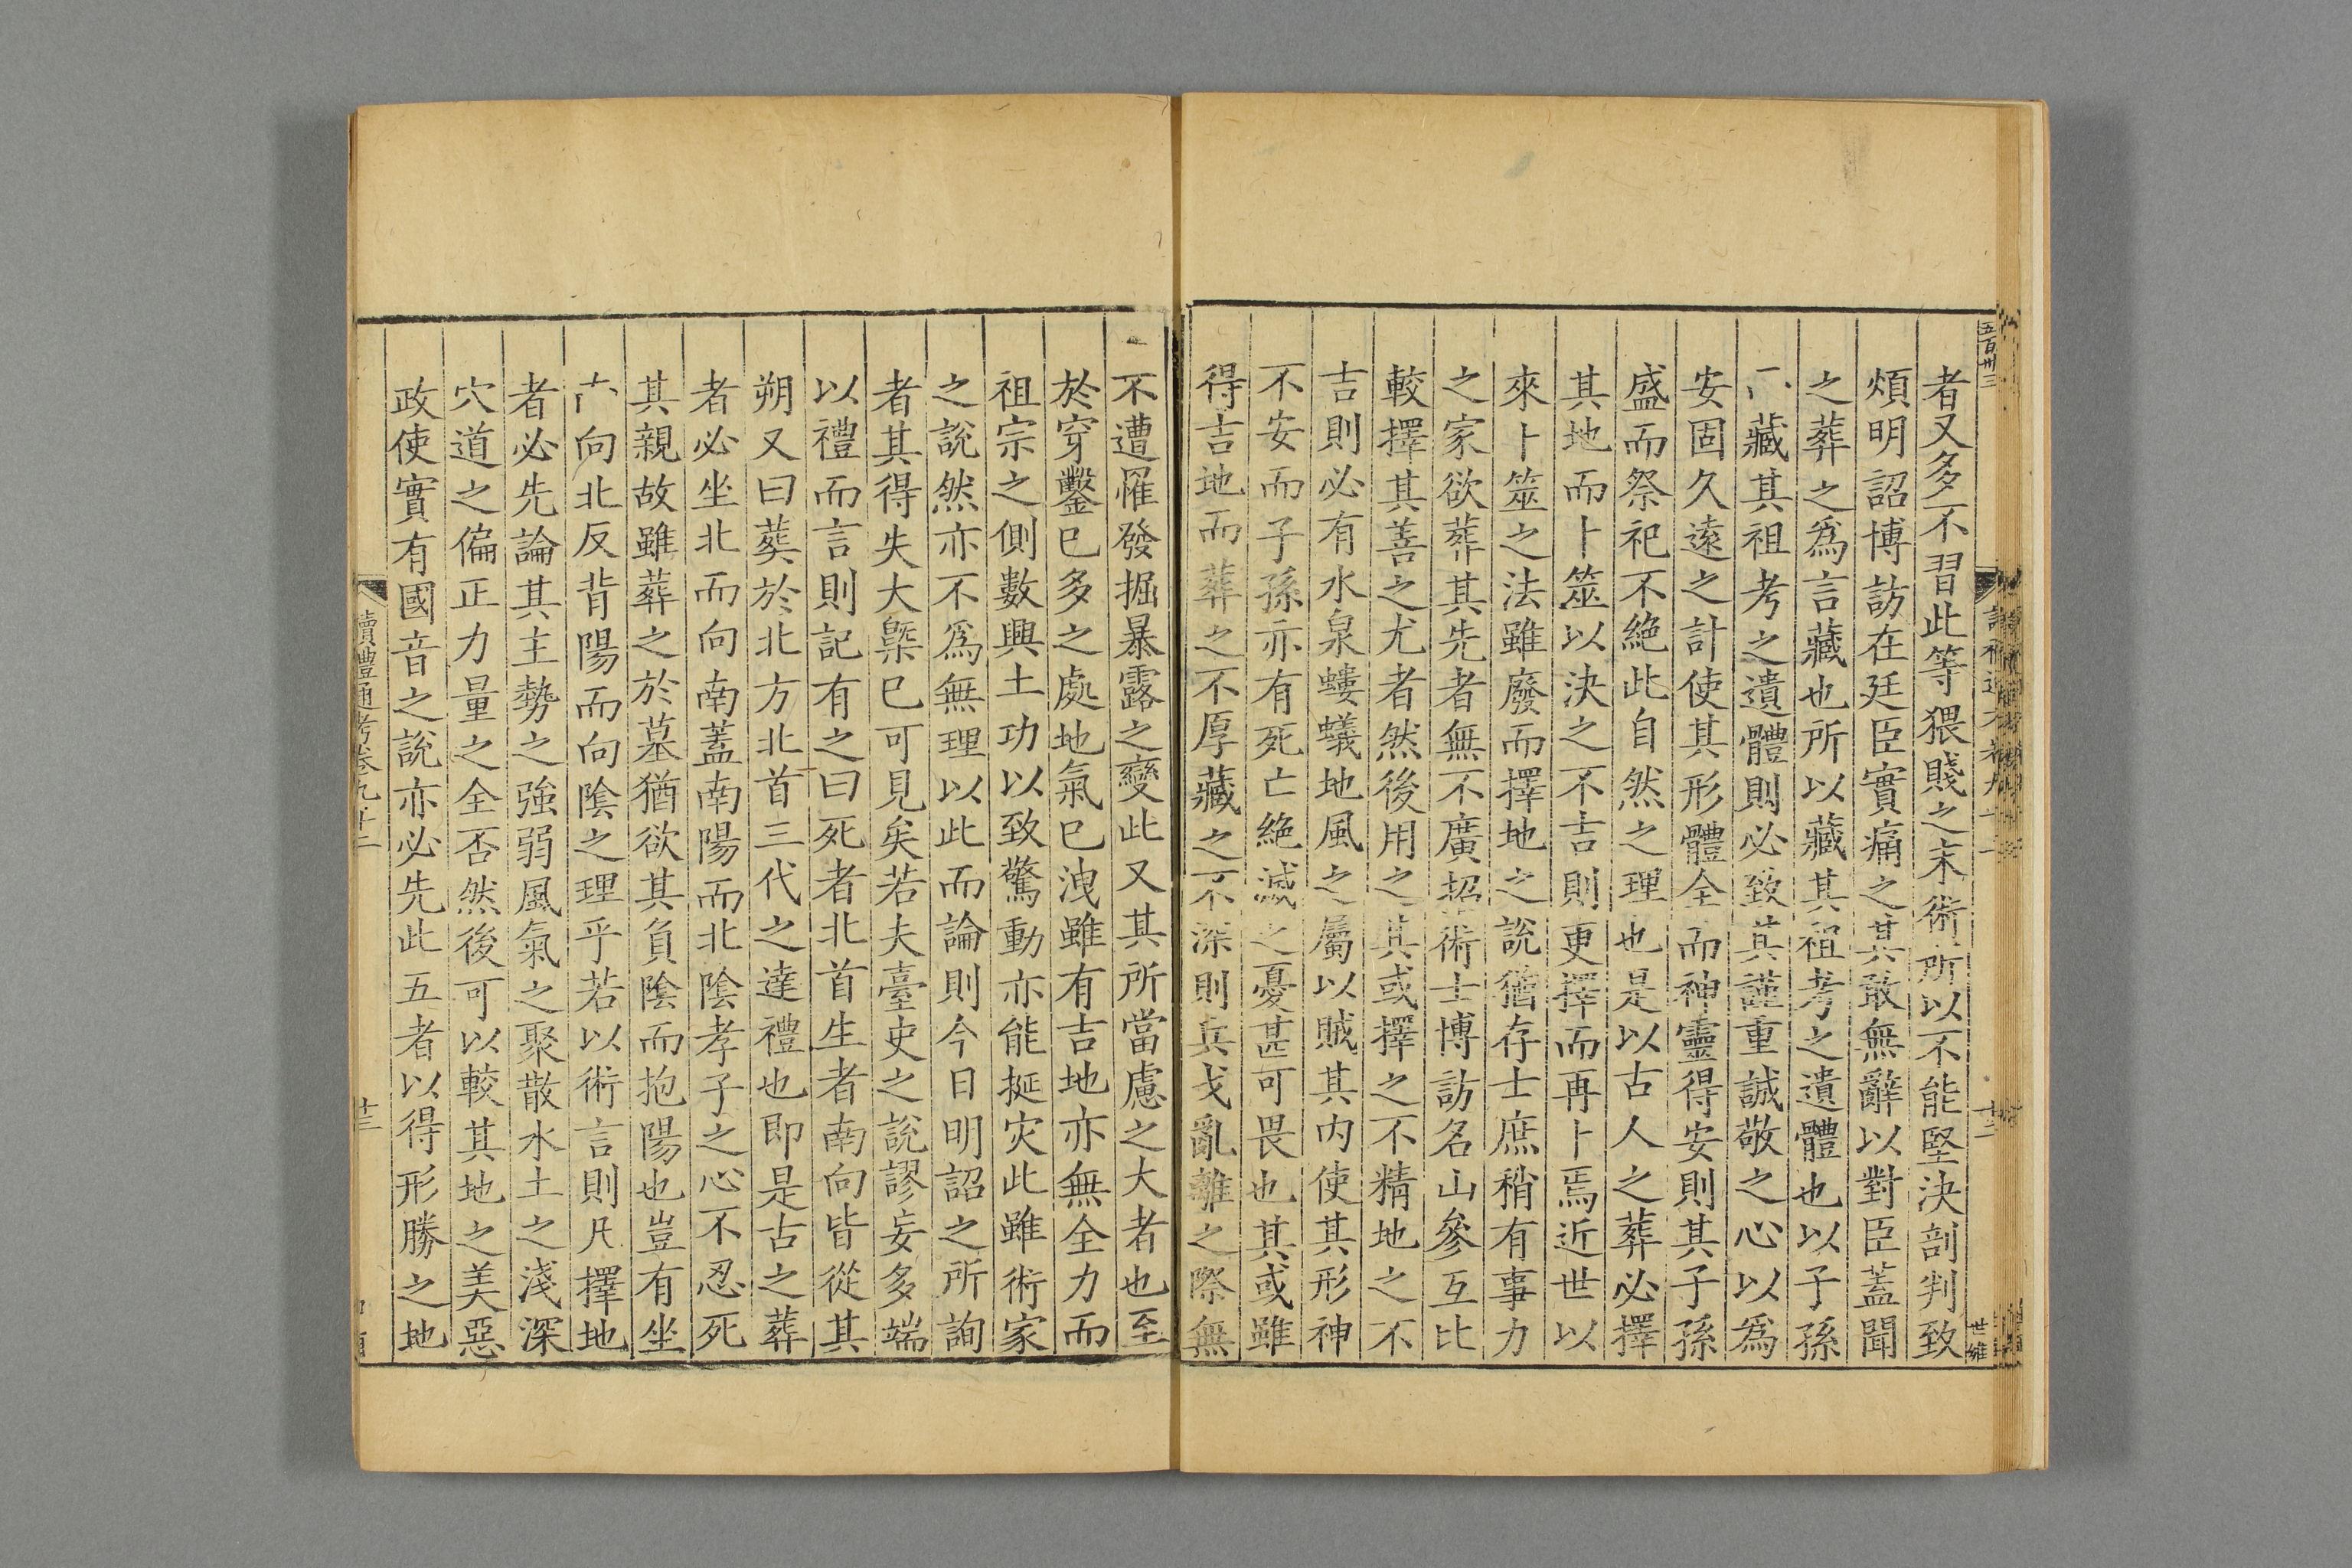 五百卅三
者又多不習此等猥賤之末術所以不能堅決剖判致
煩明詔博訪在廷臣實痛之其敢無辭以對臣蓋聞
之葬之爲言藏也所以藏其祖考之遺體也以子孫
藏其祖考之遺體則必致其謹重誠敬之心以爲
安固久遠之計使其形體全而神靈得安則其子孫
盛而祭祀不絶此自然之理也是以古人之葬必擇
其地而卜筮以決之不吉則更擇而再卜焉近世以
來卜筮之法雖廢而擇地之説猶存士庶稍有事力
之家欲葬其先者無不廣招術士博訪名山參互比
較擇其善之尤者然後用之其或擇之不精地之不
吉則必有水泉螻蟻地風之屬以賊其内使其形神
不安而子孫亦有死亡絶滅之憂甚可畏也其或雖
得吉地而葬之不厚藏之不深則兵戈亂離之際無
不遭罹發掘暴露之變此又其所當慮之大者也至
於穿鑿已多之處地氣已洩雖有吉地亦無全力而
祖宗之側數興土功以致驚動亦能挻灾此雖術家
之説然亦不爲無理以此而論則今日明詔之所詢
者其得失大槩已可見矣若夫臺史之説謬妄多端
以禮而言則記有之曰死者北首生者南向皆從其
朔又曰葬於北方北首三代之達禮也即是古之葬
者必坐北而向南蓋南陽而北陰孝子之心不忍死
其親故雖葬之於墓猶欲其負陰而抱陽也豈有坐
向北反背陽而向陰之理乎若以術言則凡擇地
者必先論其主勢之強弱風氣之聚散水土之淺深
穴道之偏正力量之全否然後可以較其地之美惡
政使實有國音之説亦必先此五者以得形勝之地
讀禮通考卷九十二